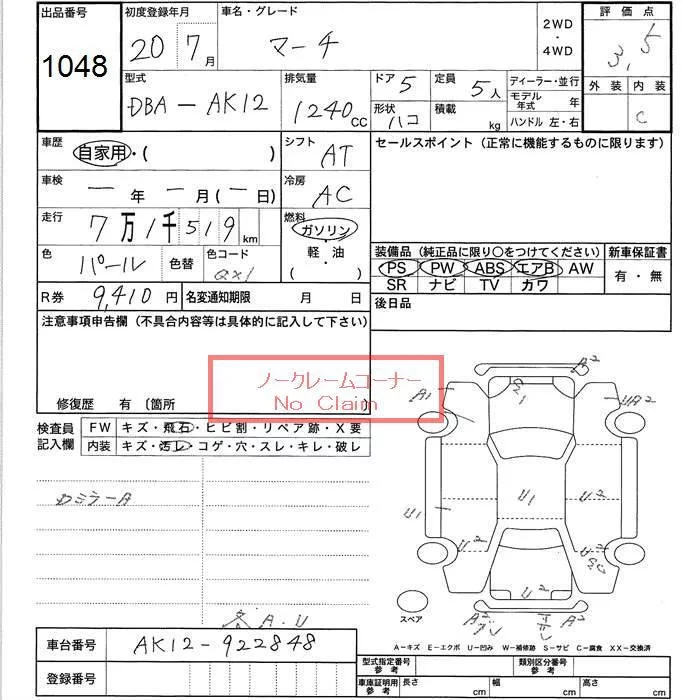 出品番号 初度登録年月 車名・グレード 2WD・4WD 評価点
1048 20 7月 マーチ 3.5
型式 排気量 ドア 5 定員 5人 ディーラー・並行 外装 内装
DBA-AK12 1240cc 形状 ハコ 積載 kg モデル年式 年 C
ハンドル 左・右
車歴 自家用・( ) シフト AT セールスポイント(正常に機能するものに限ります)
車検 ー年ー月(ー日) 冷房 AC
走行 7万1千519km 燃料 ガソリン・軽油・( )
色 パール 色替 色コード QX1
装備品(純正品に限り○をつけてください) 新車保証書
PS PW ABS エアB AW 有・無
SR ナビ TV カワ
R券 9,410円 名変通知期限 月 日 後日品
注意事項申告欄(不具合内容等は具体的に記入して下さい)
ノークレームコーナー
No Claim
修復歴 有〔箇所
検査員記入欄 FW キズ・飛石・ヒビ割・リペア跡・X要
内装 キズ・汚レ・コゲ・穴・スレ・キレ・破レ
A2
A1
UA2
カミラーA
U1
U1
U2
U2
U2
A2
A2
A.U
スペア
A-キズ E-エクボ U-凹み W-補修跡 S-サビ C-腐食 XX-交換済
車台番号 AK12-922848
登録番号
型式指定番号 参考 類別区分番号 参考
車庫証明用 参考 長さ cm 幅 cm 高さ cm